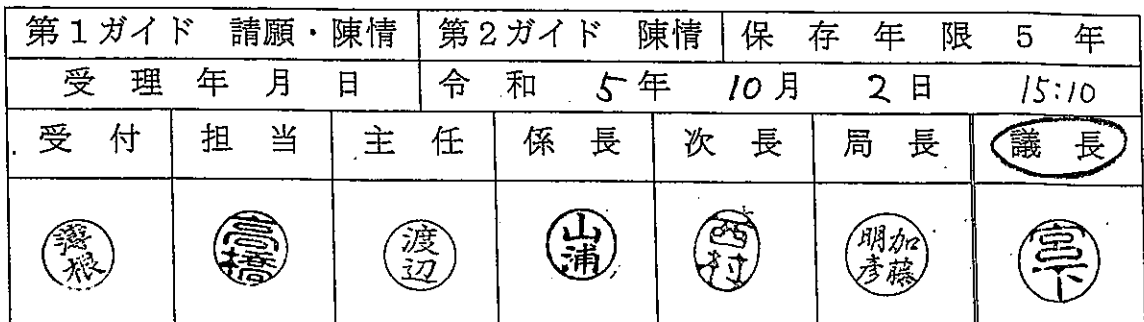 第1ガイド 請願・陳情 第2ガイド 陳情 保存年限 5年
受理年月日 令和 5年 10月 2日 15:10
受付 担当 主任 係長 次長 局長 議長
高橋 渡辺 山浦 西村 加藤明彦 宮下